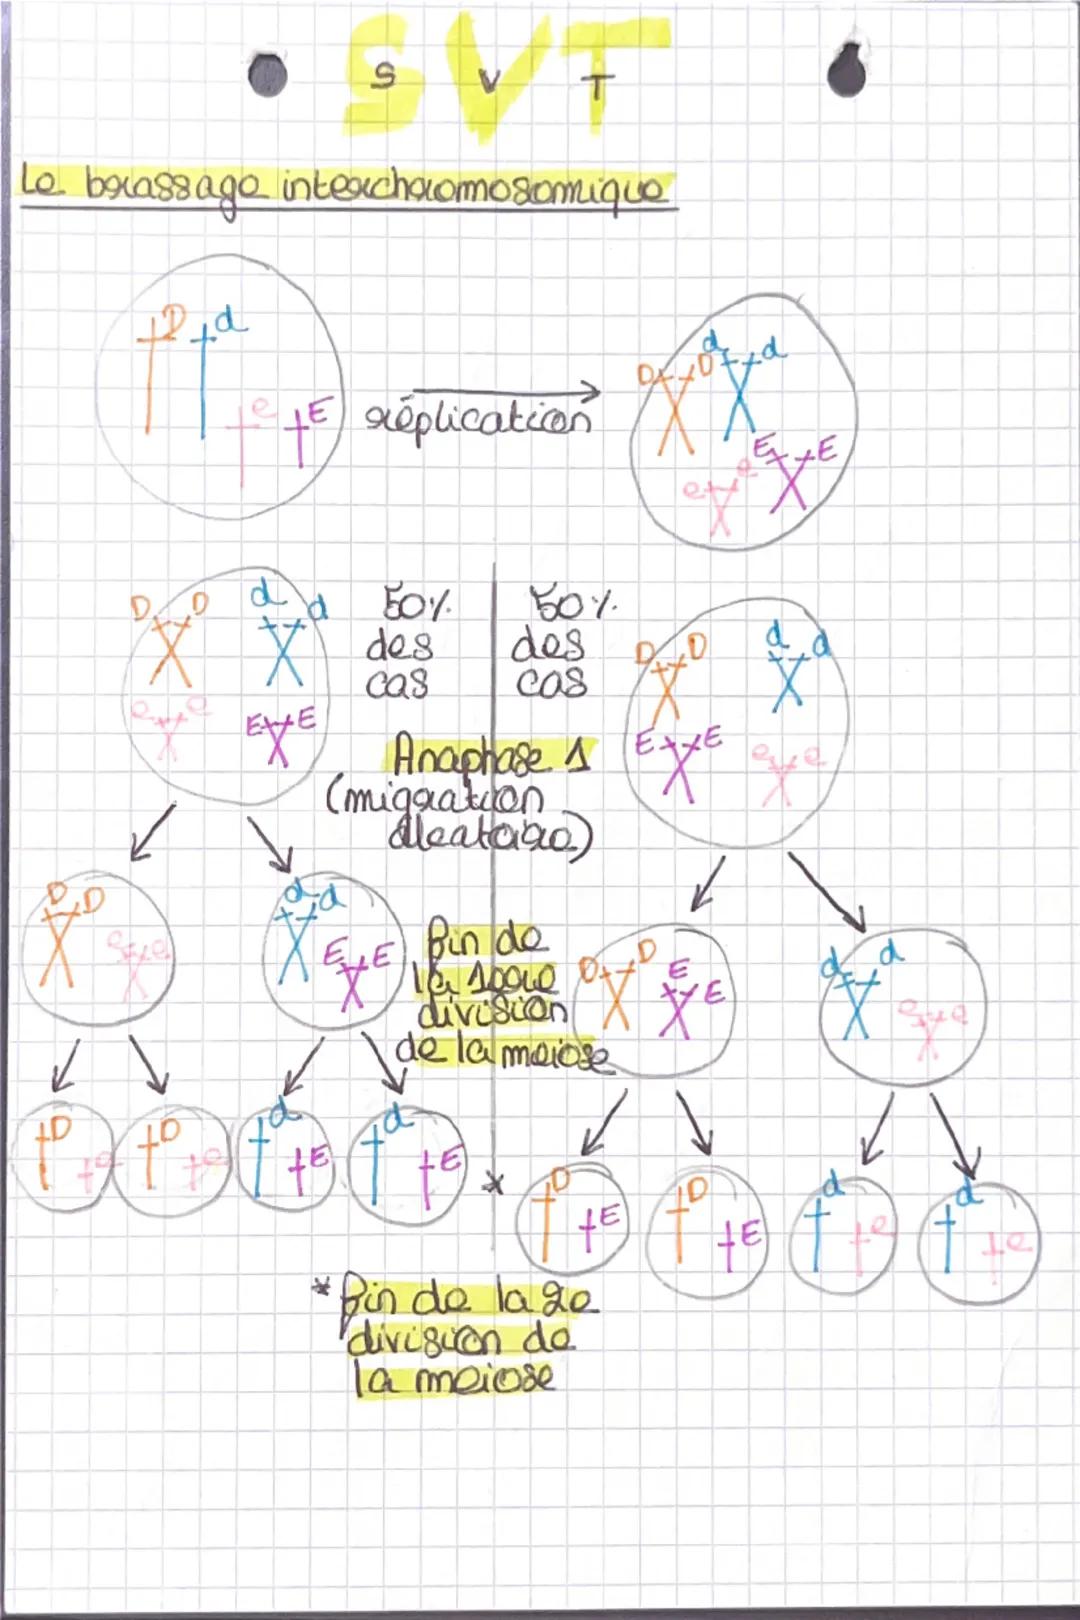 SVT
S V T
Le brassage interchromosomique
D d
e E
réplication
D D d d
e e E E
D D d d
e e E E
50% des cas
50% des cas
D D d d
E E e e
Anaphase 1
(migration
aléatoire)
D D
e e
d d
E E
fin de
la 1ère
division
de la meiose
D D E E
d d
e e
D e
D e
d E
d E
*
D E
D E
d e
d e
* fin de la 2e
division de
la meiose